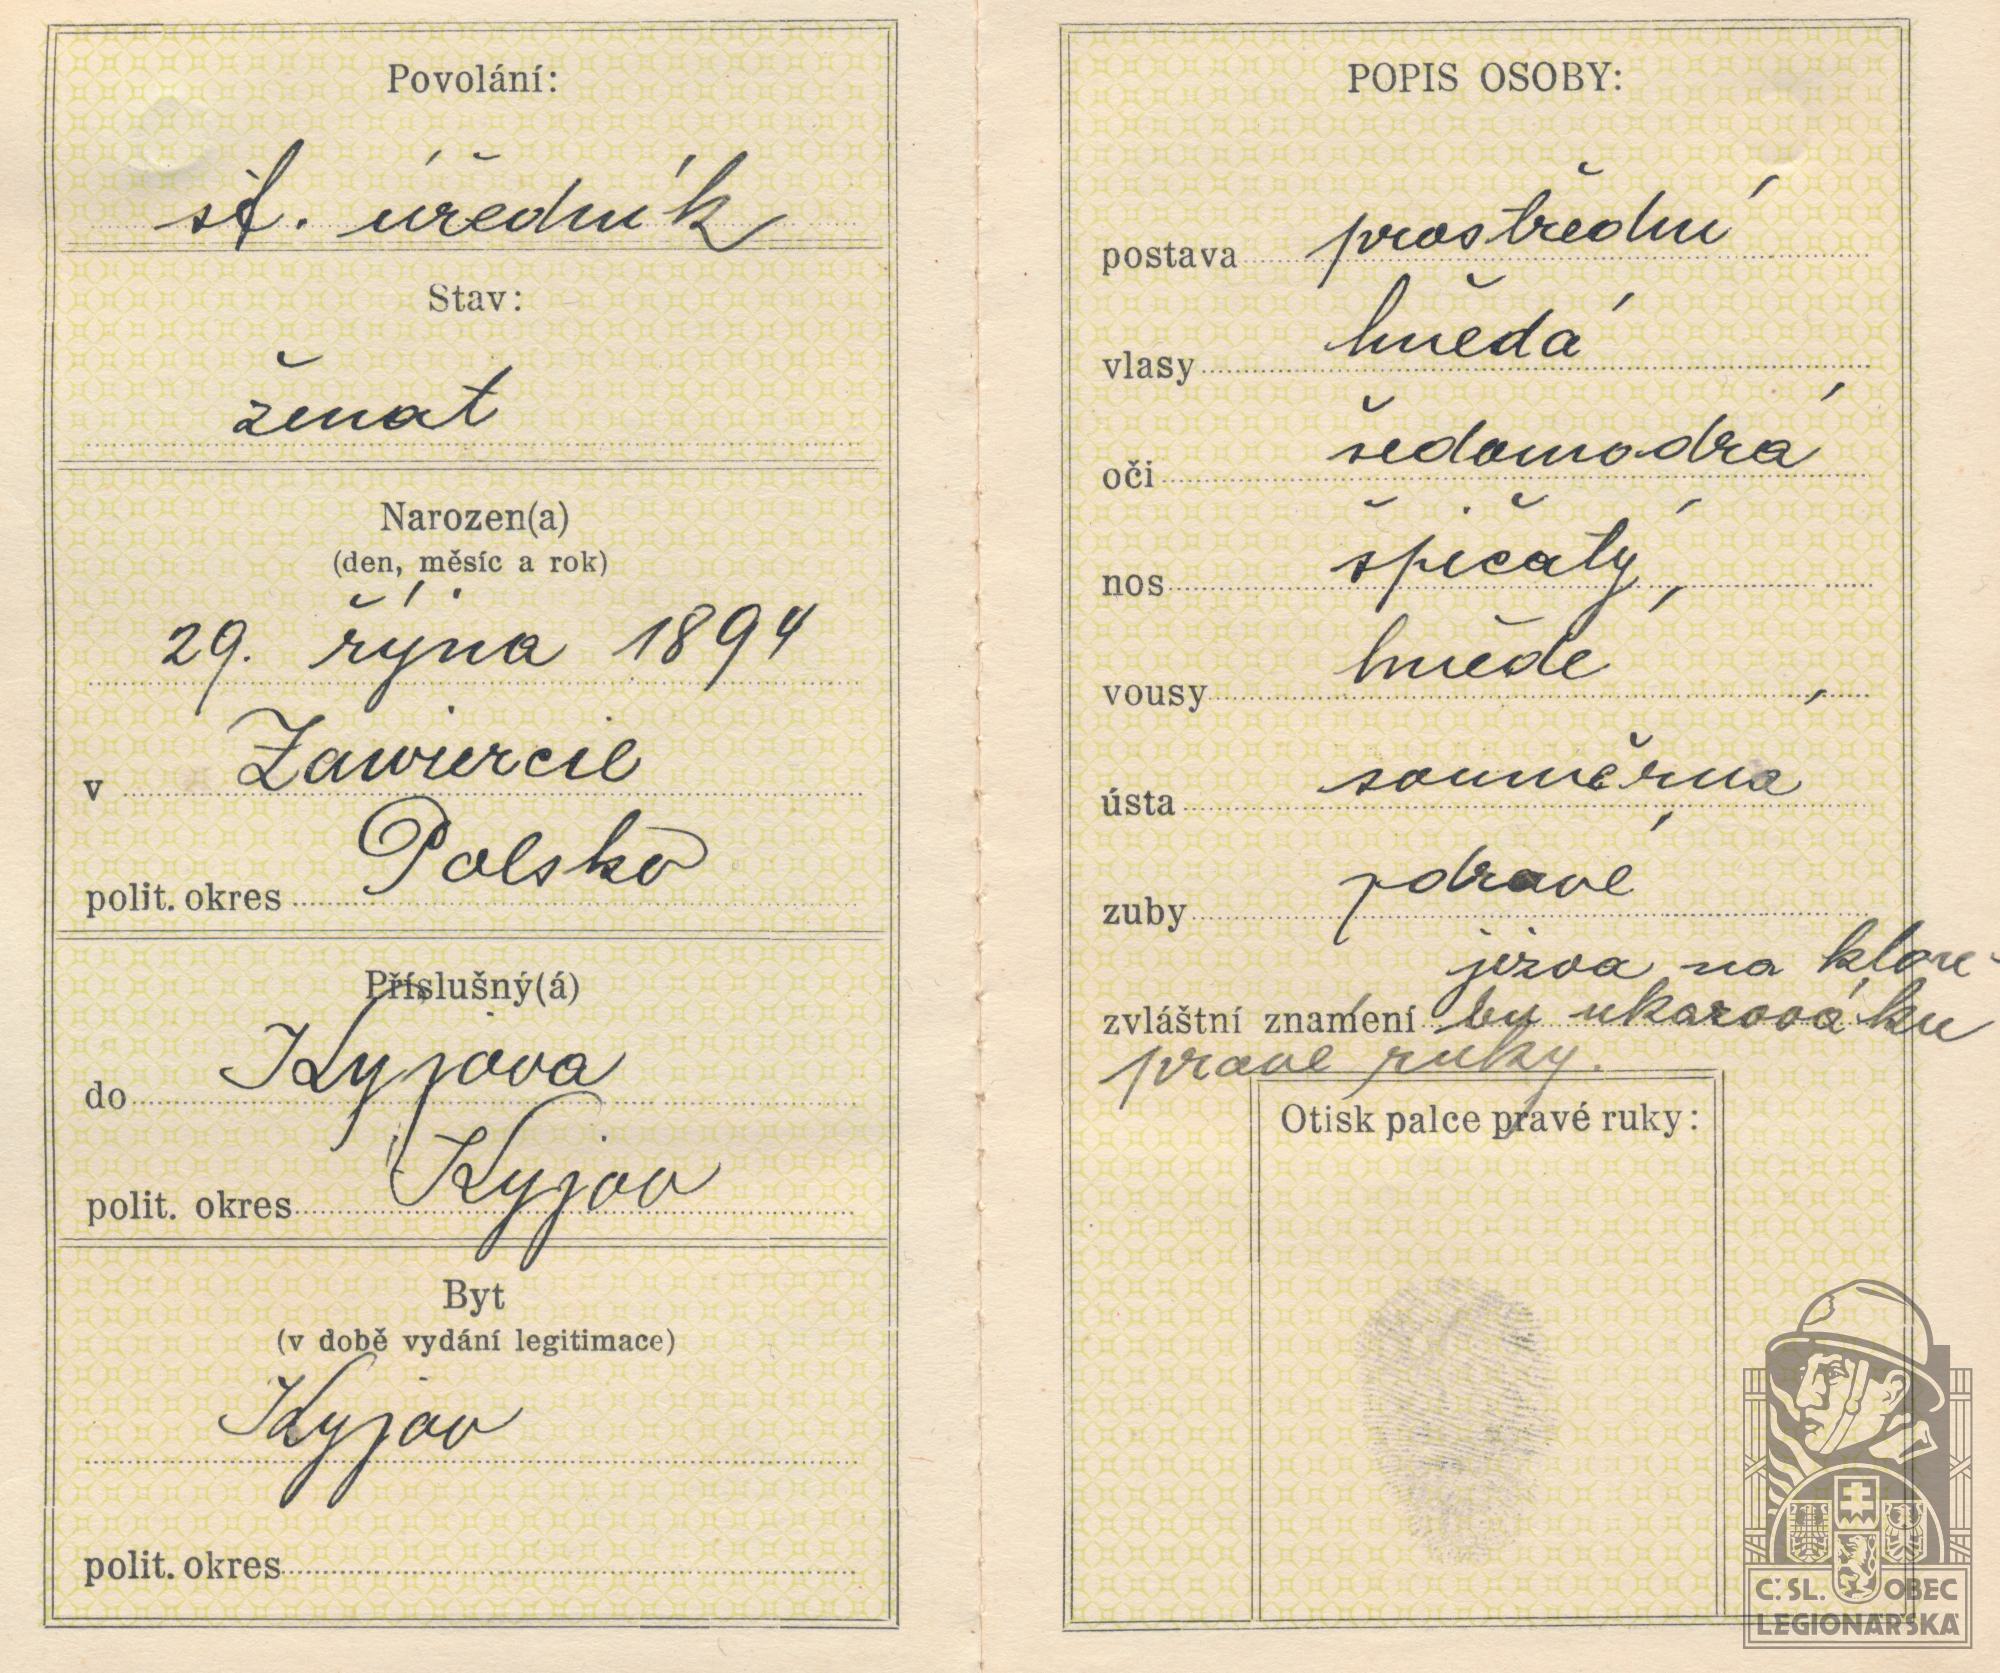 Povolání:
st. úředník
Stav:
ženat
Narozen(a)
(den, měsíc a rok)
29. října 1894
v Zawiercie
polit. okres Polsko
Příslušný(á)
do Kyjova
polit. okres Kyjov
Byt
(v době vydání legitimace)
Kyjov
polit. okres
POPIS OSOBY:
postava prostřední
vlasy hnědá
oči šedomodrá
nos špičatý
vousy hnědé
ústa souměrná
zuby zdravé
jizva na klou-
zvláštní znamení bu ukazováku
pravé ruky.
Otisk palce pravé ruky:
Č.SL. OBEC
LEGIONÁŘSKÁ